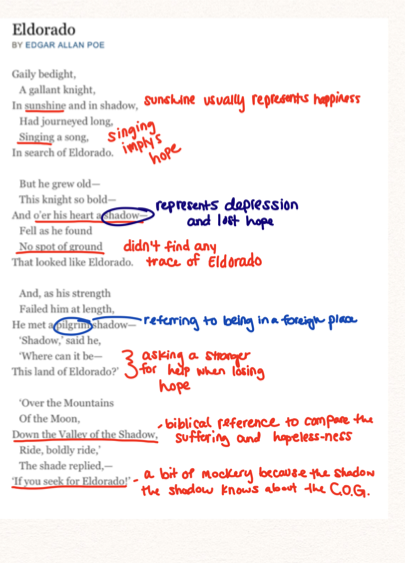 Eldorado
BY EDGAR ALLAN POE
Gaily bedight,
A gallant knight,
In sunshine and in shadow,
sunshine usually represents happiness
Had journeyed long,
Singing a song,
singing
imply's
hope
In search of Eldorado.
But he grew old—
This knight so bold—
And o'er his heart a shadow—
represents depression
and lost hope
Fell as he found
No spot of ground
didn't find any
trace of Eldorado
That looked like Eldorado.
And, as his strength
Failed him at length,
He met a pilgrim shadow—
referring to being in a foreign place
'Shadow,' said he,
'Where can it be—
This land of Eldorado?'
asking a stranger
for help when losing
hope
'Over the Mountains
Of the Moon,
Down the Valley of the Shadow,
- biblical reference to compare the
suffering and hopeless-ness
Ride, boldly ride,'
The shade replied,—
'If you seek for Eldorado!'
- a bit of mockery because the shadow
the shadow knows about the C.O.G.